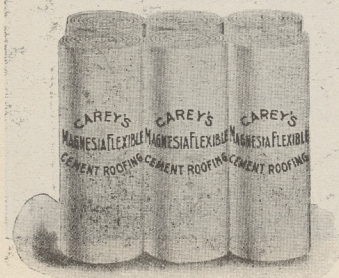 CAREY'S
MAGNESIA FLEXIBLE
CEMENT ROOFING
CAREY'S
MAGNESIA FLEXIBLE
CEMENT ROOFING
CAREY'S
MAGNESIA FLEXIBLE
CEMENT ROOFING